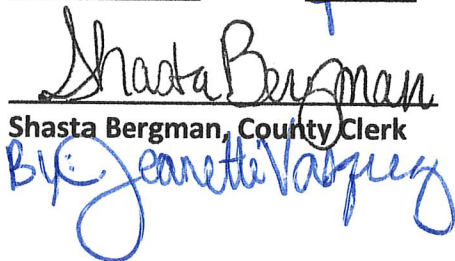 Shasta Bergman
Shasta Bergman, County Clerk
By: Jeanette Vasquez